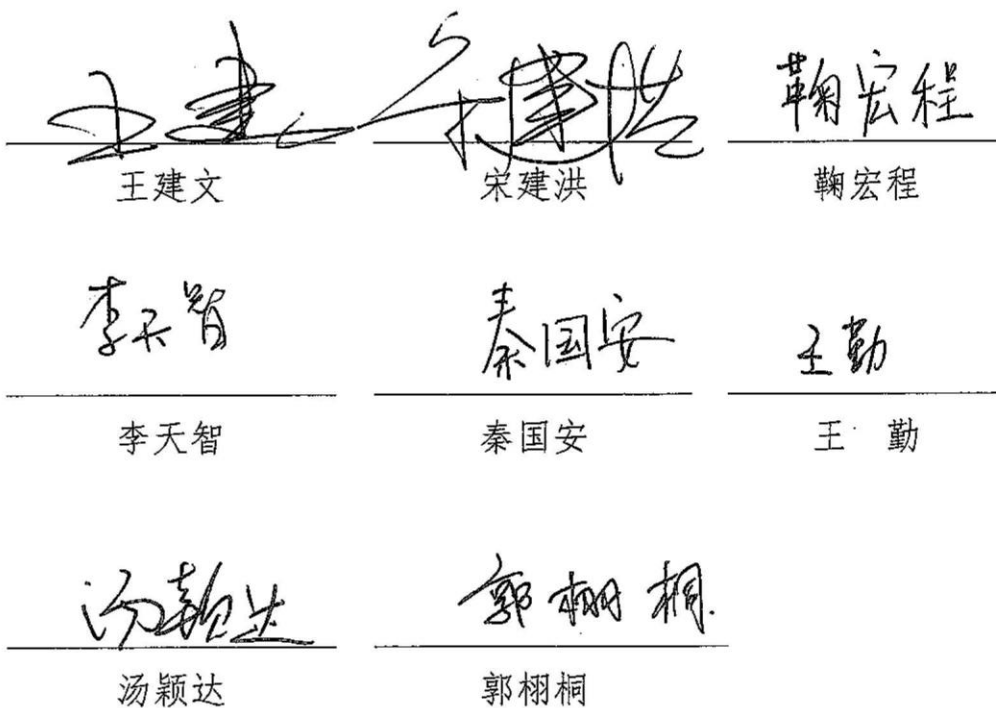 王建 宋建洪 鞠宏程
王建文 宋建洪 鞠宏程
李天智 秦国安 王勤
李天智 秦国安 王 勤
汤颖达 郭栩桐
汤颖达 郭栩桐